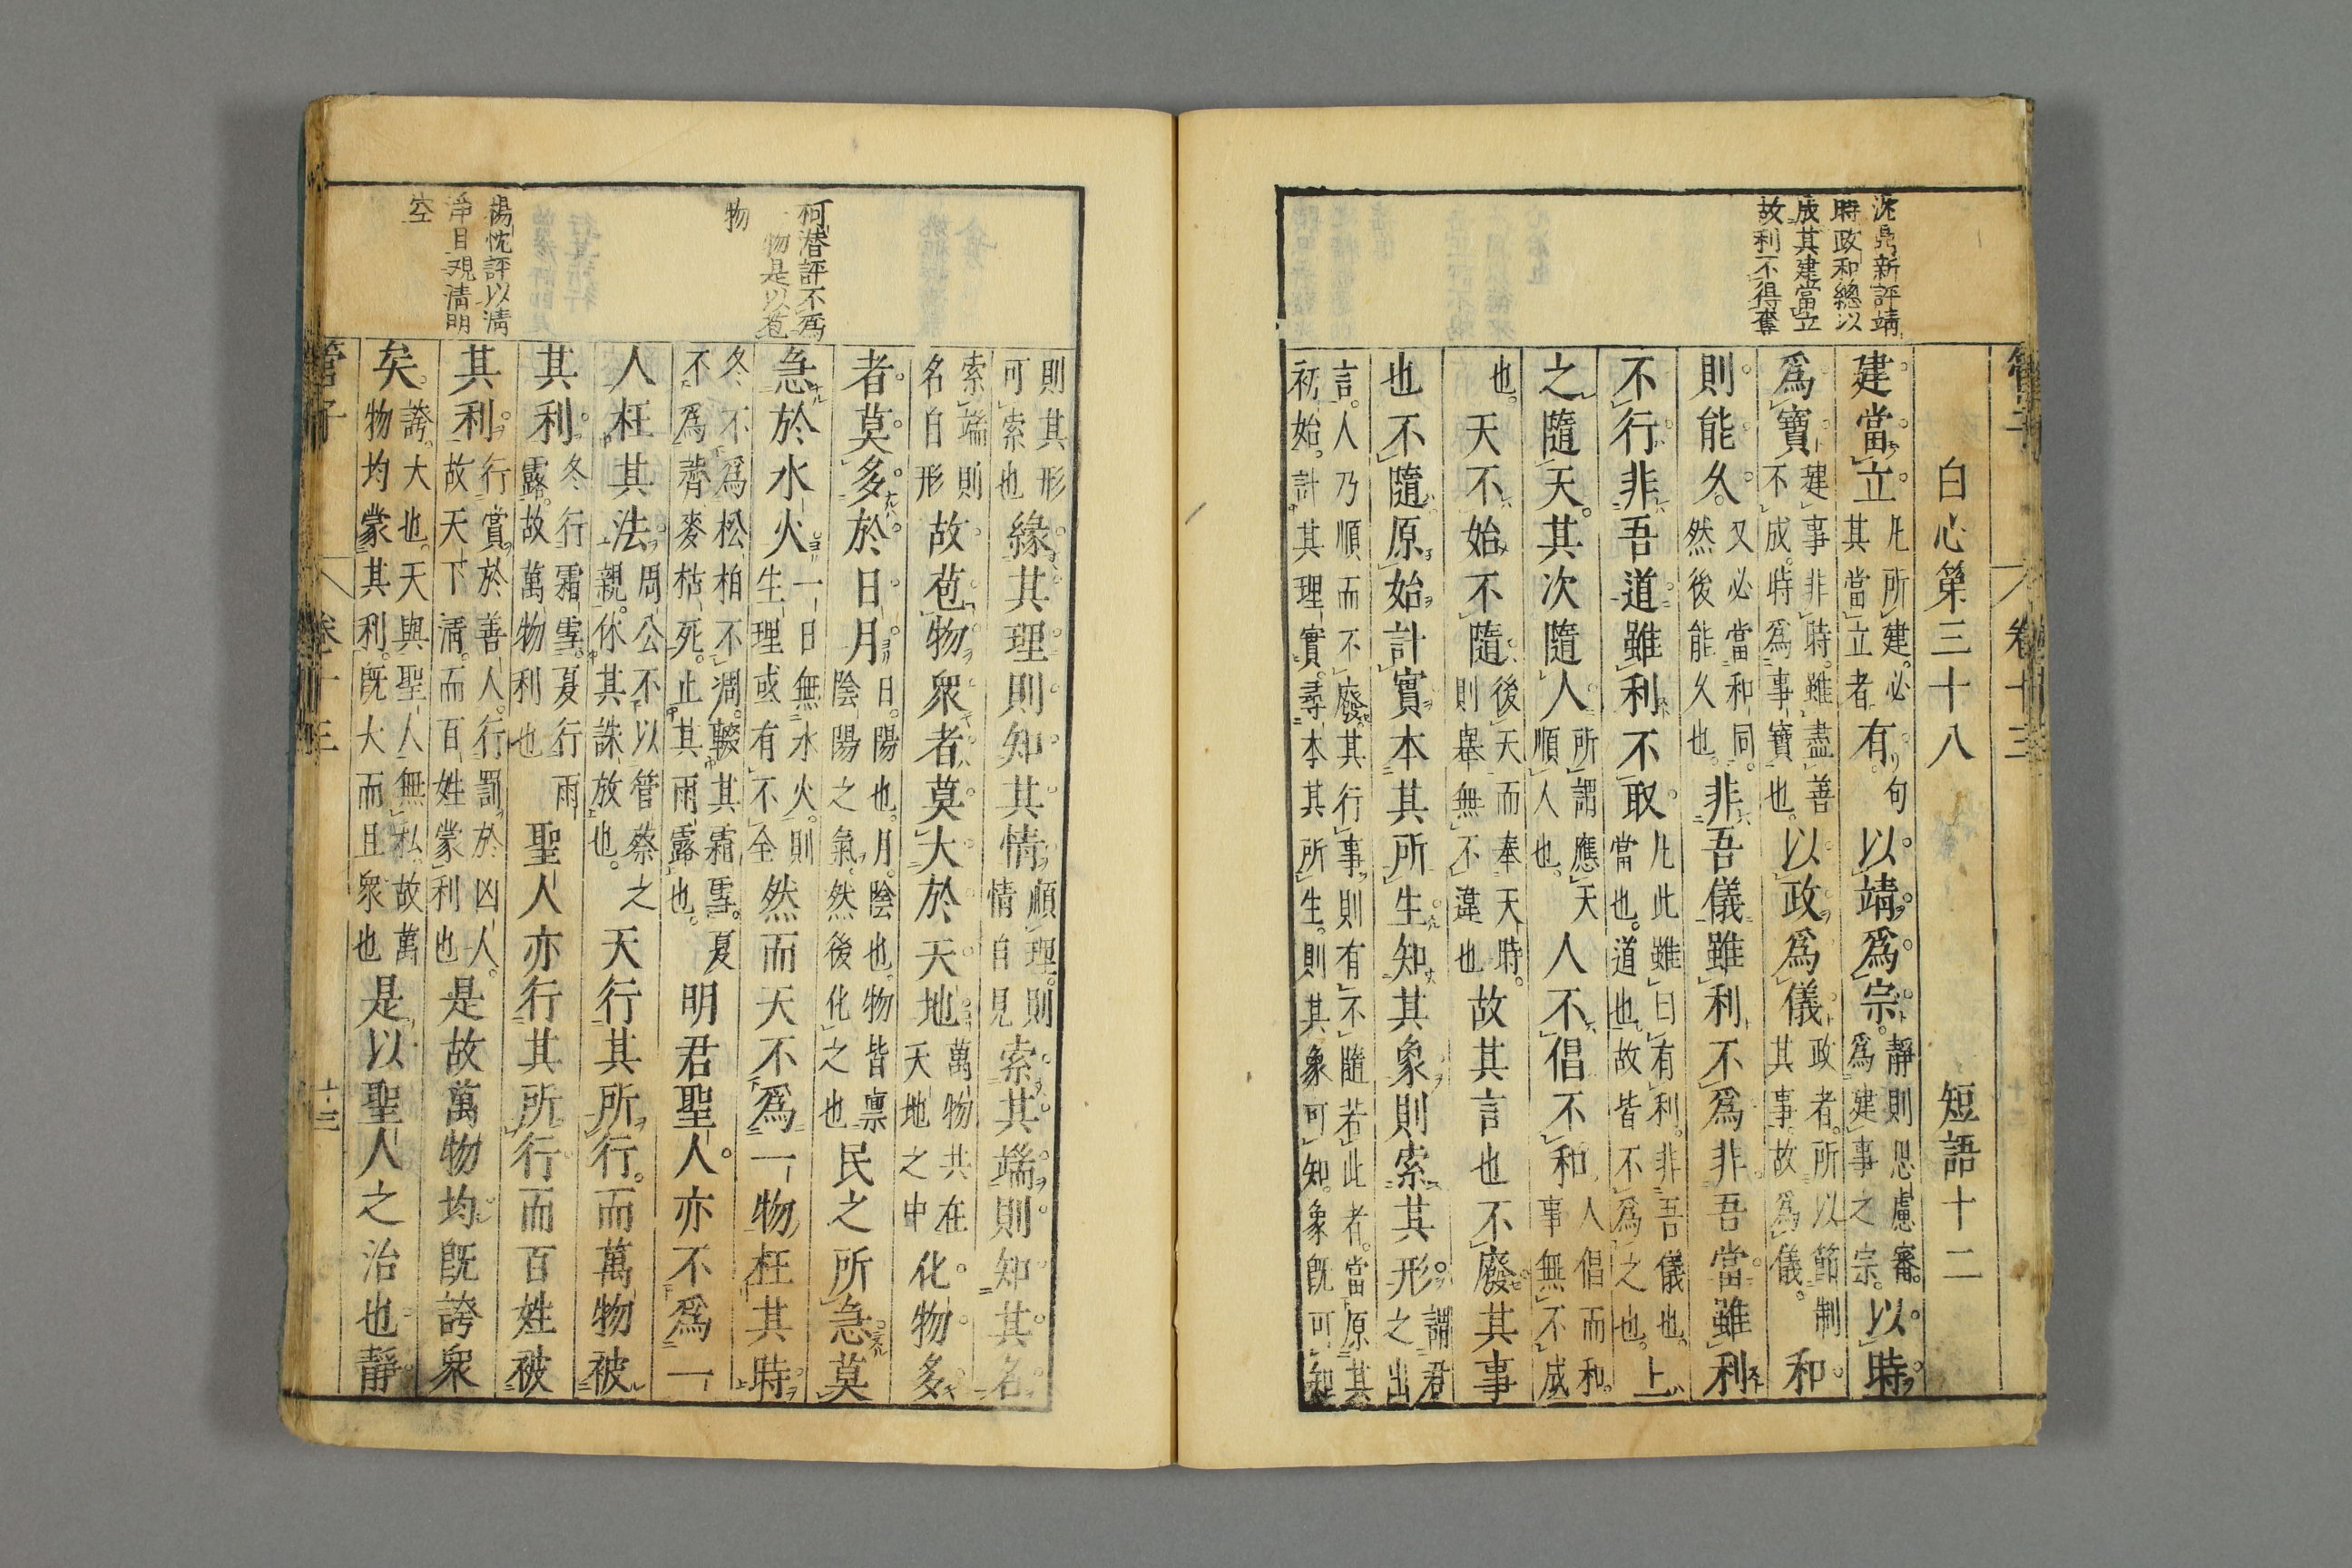 管子
卷十三
沈鼎新評靖
時政和總以
成其建當立
故利不得奪
白心第三十八 短語十二
建當立凡所建必其當立者有句以靖爲宗靜則思慮審爲建事之宗以時
爲寶建事非時雖盡善不成時爲事寶也以政爲儀政者所以節制其事故爲儀和
則能久又必當和同然後能久也非吾儀雖利不爲非吾當雖利
不行非吾道雖利不取凡此雖曰有利非吾儀也當也道也故皆不爲之也上
之隨天其次隨人所謂應天順人也人不倡不和人倡而和事無不成
也天不始不隨後天而奉天時則舉無不違也故其言也不廢其事
也不隨原始計實本其所生知其象則索其形謂君之出
言人乃順而不廢其行事則有不隨若此者當原其初始計其理實尋本其所生則其象可知象旣可知
則其形可索也緣其理則知其情順理則情自見索其端則知其名
索端則名自形故苞物衆者莫大於天地萬物共在天地之中化物多
者莫多於日月日陽也月陰也物皆禀陰陽之氣然後化之也民之所急莫
急於水火一日無水火則生理或有不全然而天不爲一物枉其時
冬不爲松柏不凋輟其霜雪夏不爲薺麥枯死止其雨露也明君聖人亦不爲一
人枉其法周公不以管蔡之親休其誅放也天行其所行而萬物被
其利冬行霜雪夏行雨露故萬物利也聖人亦行其所行而百姓被
其利行賞於善人行罰於凶人故天下清而百姓蒙利也是故萬物均旣誇衆
矣誇大也天與聖人無私故萬物均蒙其利旣大而且衆也是以聖人之治也靜
柯潛評不爲
物是以苞
物
楊忱評以淸
淨目視淸明
空
管子
卷十三
十三